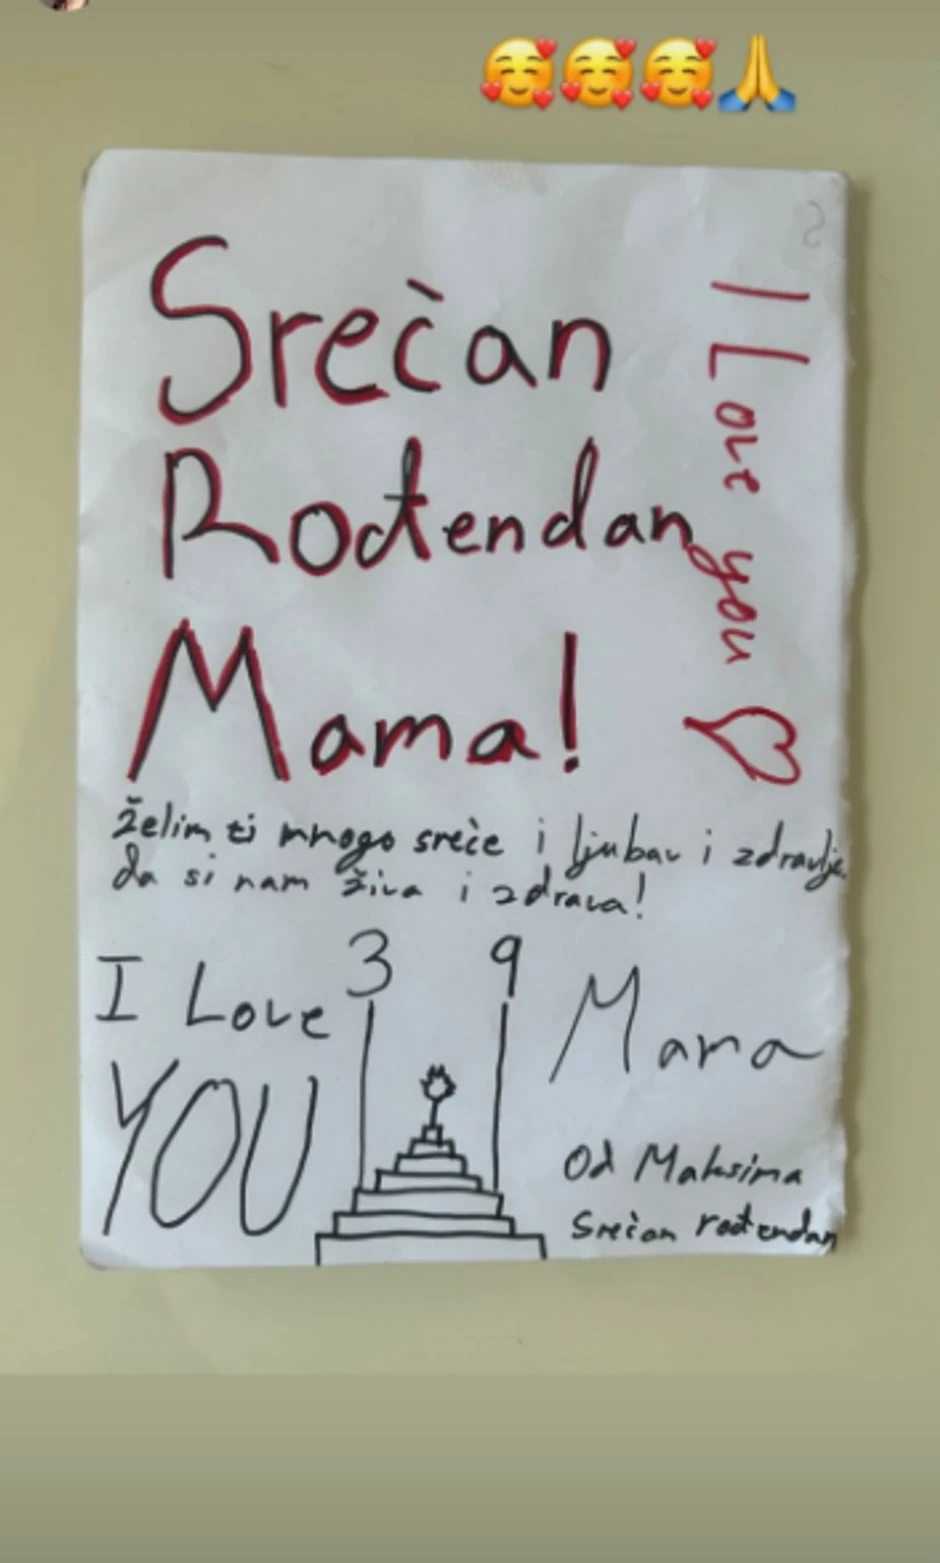 Srećan
Rođendan
Mama!
I Love you
Želim ti mnogo sreće i ljubav i zdravlje
da si nam živa i zdrava!
I Love
YOU
3 9
Mama
Od Maksima
Srećan rođendan